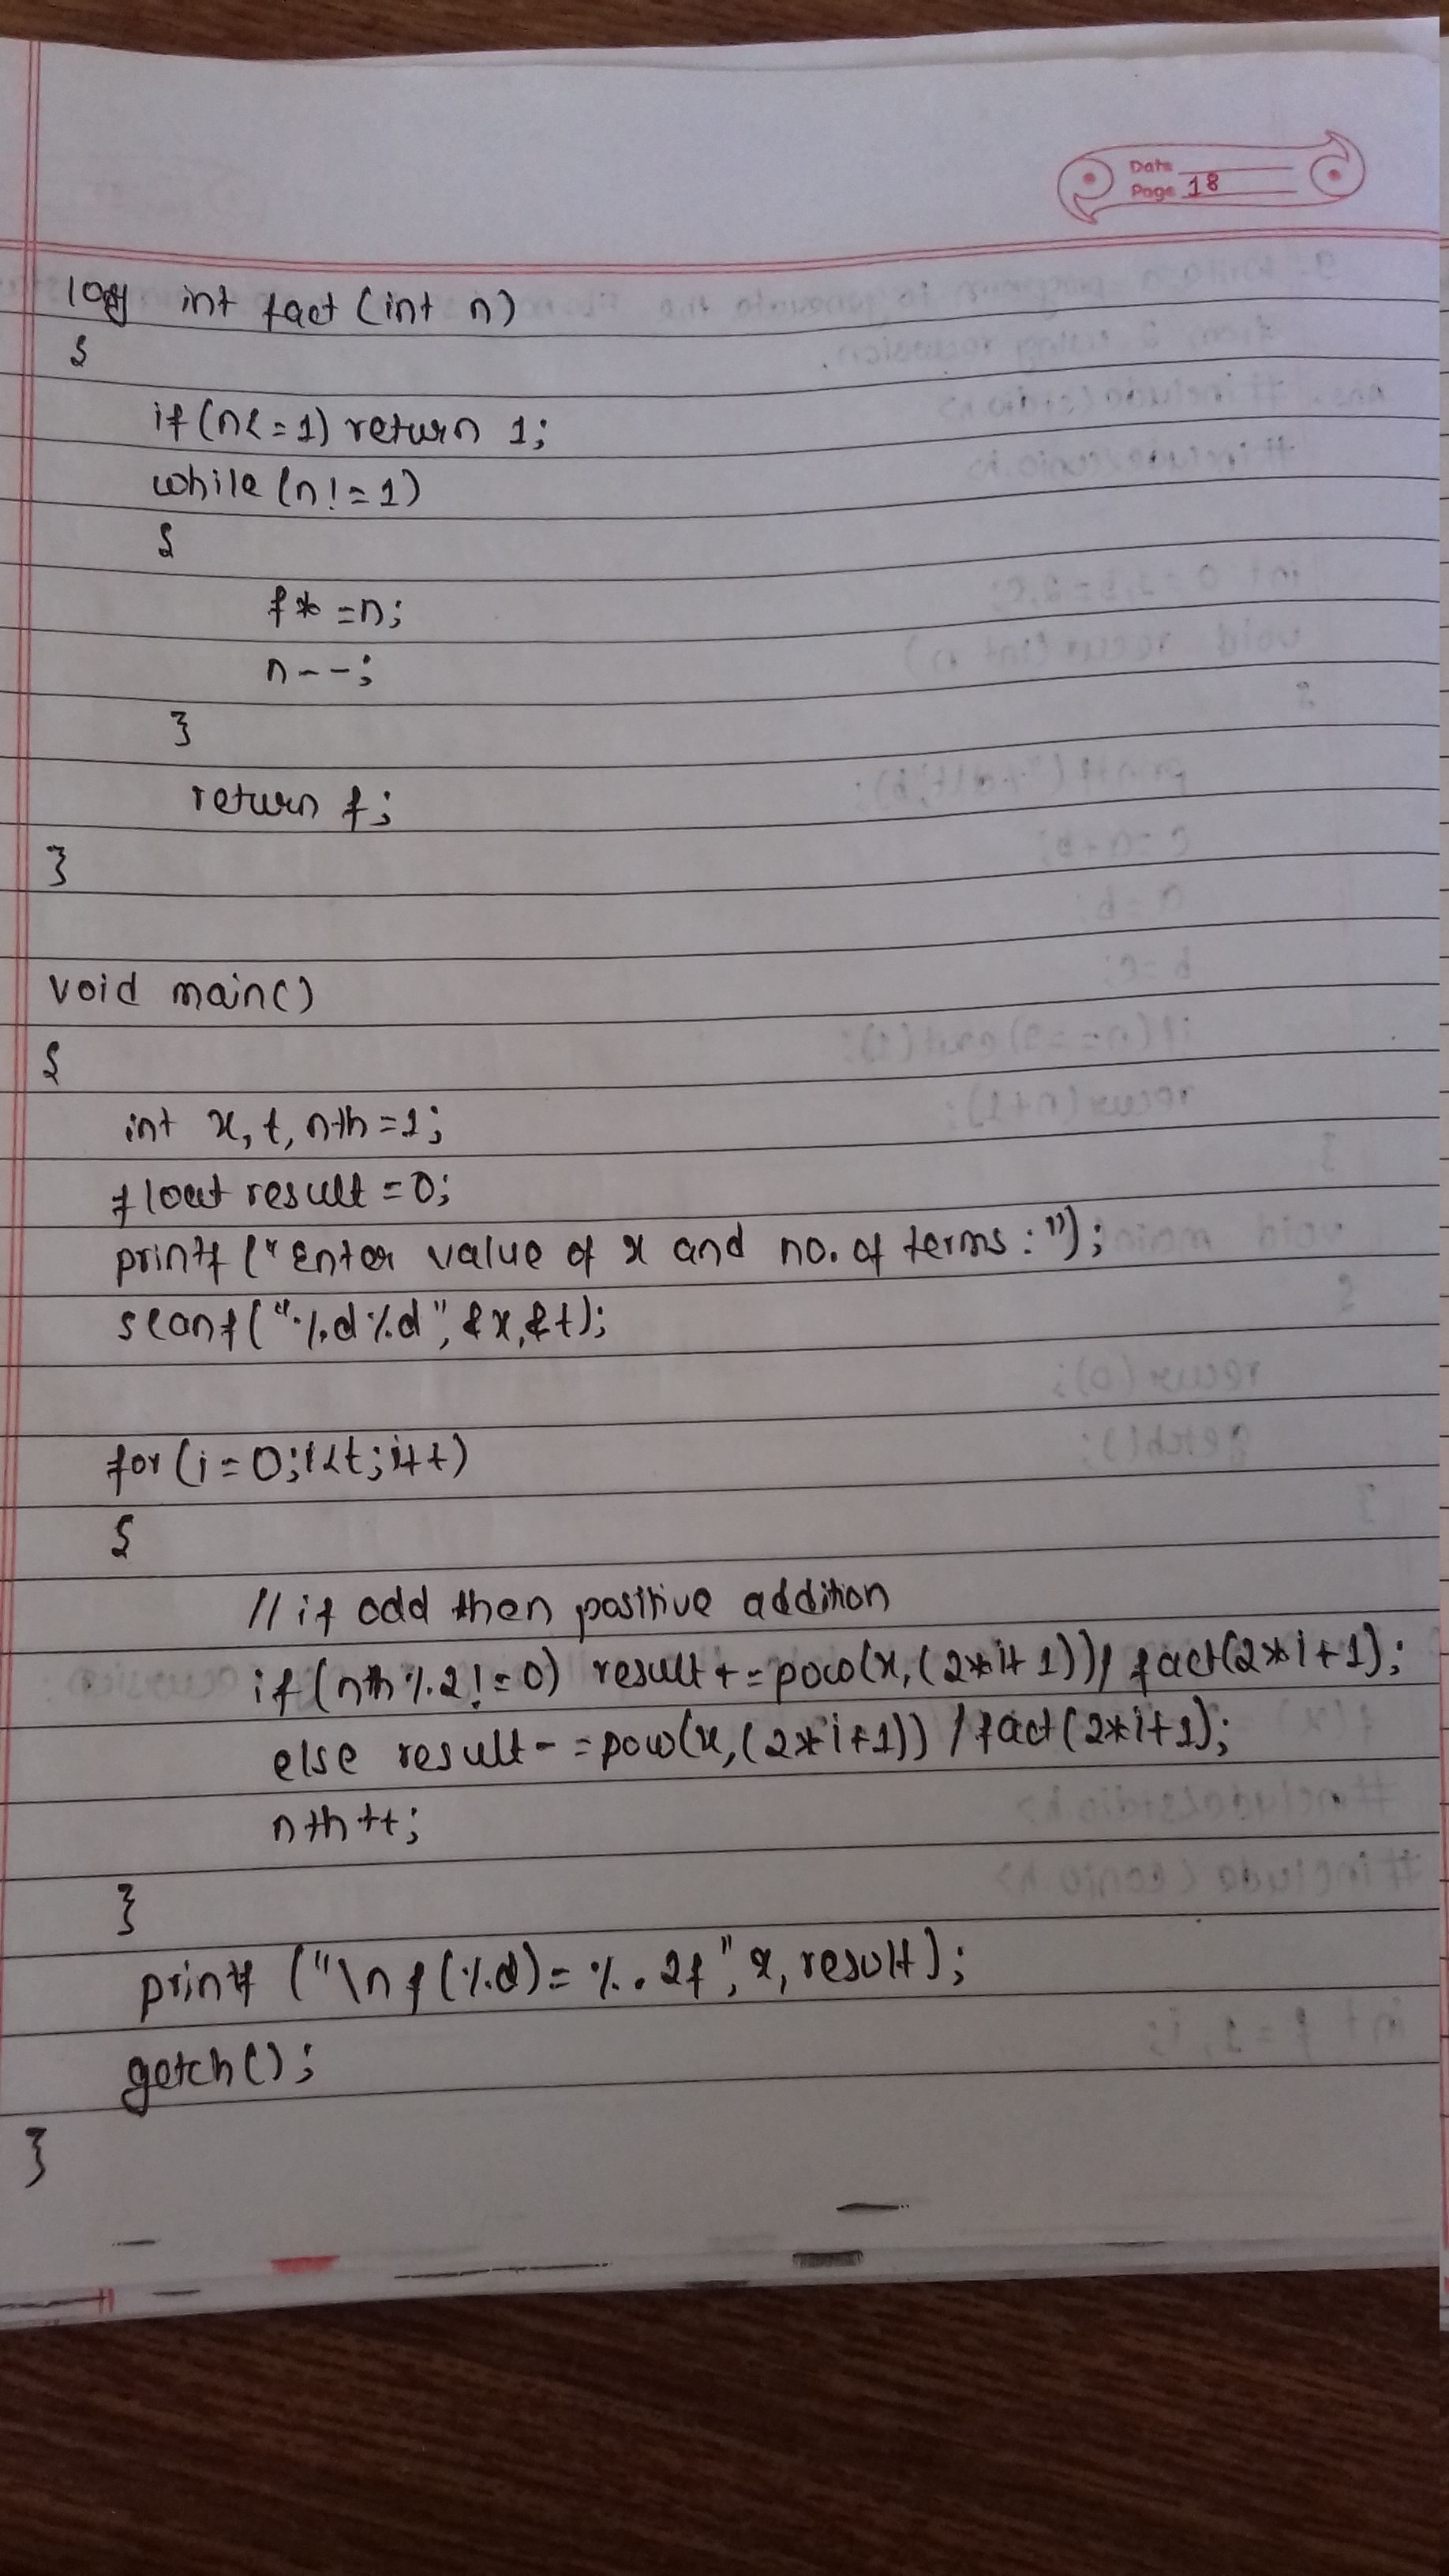 Date
Page 18
long int fact (int n)
{
if (n<=1) return 1;
while (n!=1)
{
f*=n;
n--;
}
return f;
}
void main()
{
int x, t, nth=1;
float result =0;
printf ("Enter value of x and no. of terms :");
scanf("%d%d", &x,&t);
for (i=0;i<t;i++)
{
// if odd then positive addition
if (nth%2!=0) result+=pow(x,(2*i+1))/fact(2*i+1);
else result-=pow(x,(2*i+1))/fact(2*i+1);
nth++;
}
printf ("\nf(%d)=%.2f",x,result);
getch();
}